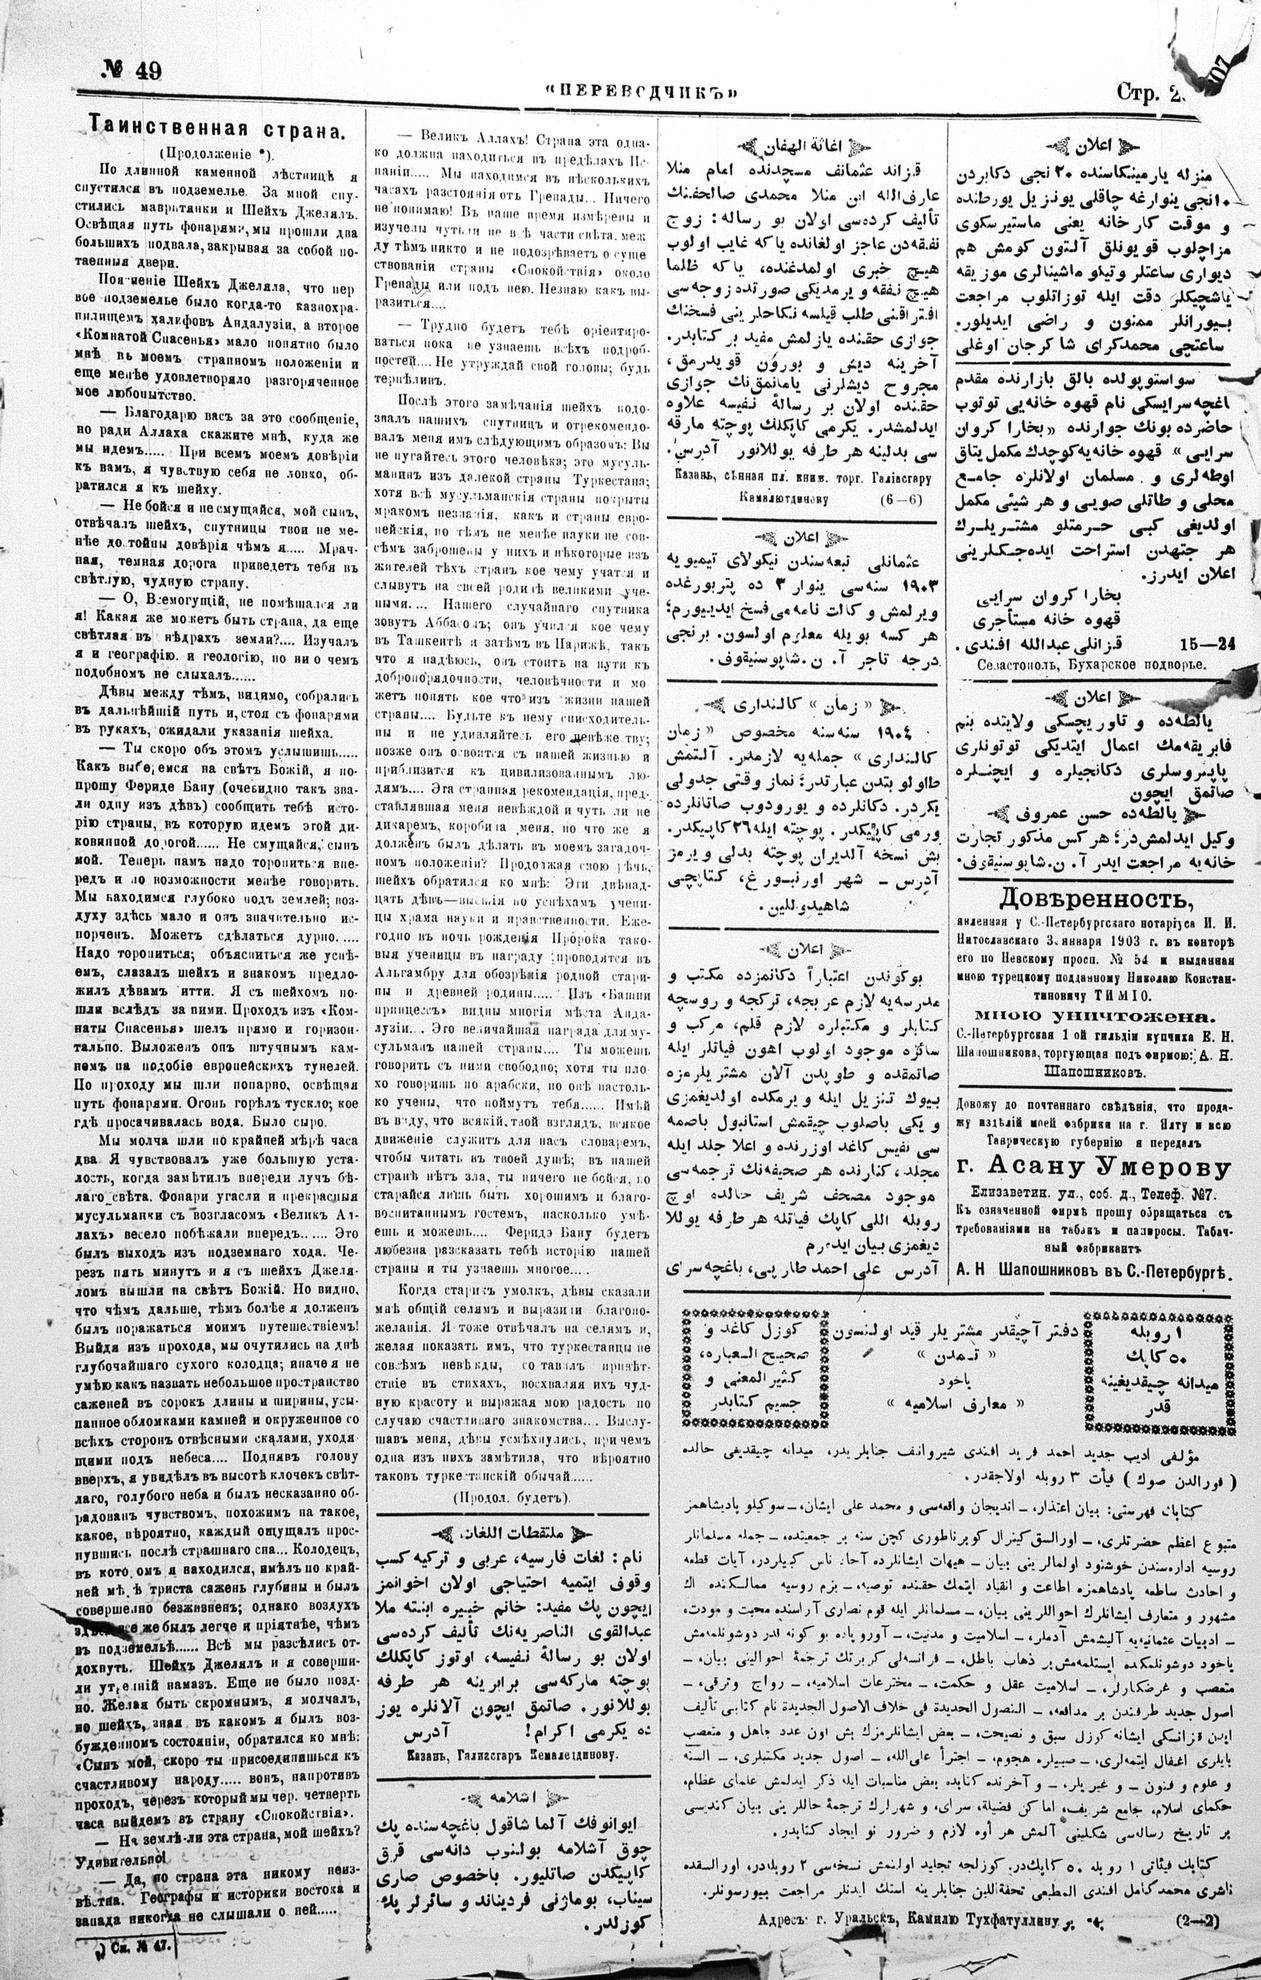 № 49
"ПЕРЕВОДЧИКЪ"
Стр. 2
Таинственная страна.
(Продолженіе *).
По длинной каменной лѣстницѣ я
спустился въ подземелье. За мной спу-
стились мавританки и Шейхъ Джелялъ.
Освѣщая путь фонарями, мы прошли два
большихъ подвала, закрывая за собой по-
таенныя двери.
Поясненіе Шейхъ Джеляла, что пер
вое подземелье было когда-то казнохра-
нилищемъ халифовъ Андалузіи, а второе
«Комнатой Спасенья» мало понятно было
мнѣ въ моемъ странномъ положеніи и
еще менѣе удовлетворяло разгоряченное
мое любопытство.
— Благодарю васъ за это сообщеніе,
но ради Аллаха скажите мнѣ, куда же
мы идемъ..... При всемъ моемъ довѣріи
къ вамъ, я чувствую себя не ловко, об-
ратился я къ шейху.
— Не бойся и не смущайся, мой сынъ,
отвѣчалъ шейхъ, спутницы твои не ме-
нѣе достойны довѣрія чѣмъ я..... Мрач-
ная, темная дорога приведетъ тебя въ
свѣтлую, чудную страну.
— О, Всемогущій, не помѣшался ли
я! Какая же можетъ быть страна, да еще
свѣтлая въ нѣдрахъ земли?.... Изучалъ
я и географію. и геологію, но ни о чемъ
подобномъ не слыхалъ......
Дѣвы между тѣмъ, видимо, собрались
въ дальнѣйшій путь и, стоя съ фонарями
въ рукахъ, ожидали указанія шейха.
— Ты скоро объ этомъ услышишь.....
Какъ выберемся на свѣтъ Божій, я по-
прошу Фериде Бану (очевидно такъ зва-
ли одну изъ дѣвъ) сообщить тебѣ исто-
рію страны, въ которую идемъ этой ди-
ковинной дорогой...... Не смущайся, сынъ
мой. Теперь намъ надо торопиться впе-
редъ и по возможности менѣе говорить.
Мы находимся глубоко подъ землей; воз-
духу здѣсь мало и онъ значительно ис-
порченъ. Можетъ сдѣлаться дурно.....
Надо торопиться; объясниться же успѣ-
емъ, сказалъ шейхъ и знакомъ предло-
жилъ дѣвамъ итти. Я съ шейхомъ по-
шли вслѣдъ за ними. Проходъ изъ «Ком-
наты Спасенья» шелъ прямо и горизон-
тально. Выложенъ онъ штучнымъ кам-
немъ на подобіе европейскихъ тунелей.
По проходу мы шли попарно, освѣщая
путь фонарями. Огонь горѣлъ тускло; кое
гдѣ просачивалась вода. Было сыро.
Мы молча шли по крайней мѣрѣ часа
два. Я чувствовалъ уже большую уста-
лость, когда замѣтилъ впереди лучъ бѣ-
лаго свѣта. Фонари угасли и прекрасныя
мусульманки съ возгласомъ «Великъ Ал-
лахъ» весело побѣжали впередъ...... Это
былъ выходъ изъ подземнаго хода. Че-
резъ пять минутъ и я съ шейхъ Джеля-
ломъ вышли на свѣтъ Божій. Но видно,
что чѣмъ дальше, тѣмъ болѣе я долженъ
былъ поражаться моимъ путешествіемъ!
Выйдя изъ прохода, мы очутились на днѣ
глубочайшаго сухого колодца; иначе я не
умѣю какъ назвать небольшое пространство
саженей въ сорокъ длины и ширины, усы-
панное обломками камней и окруженное со
всѣхъ сторонъ отвѣсными скалами, уходя
щими подъ небеса.... Поднявъ голову
вверхъ, я увидѣлъ въ высотѣ клочекъ свѣт-
лаго, голубого неба и былъ несказанно об-
радованъ чувствомъ, похожимъ на такое,
какое, вѣроятно, каждый ощущалъ прос-
нувшись послѣ страшнаго сна... Колодецъ,
въ которомъ я находился, имѣлъ по край-
ней мѣрѣ триста сажень глубины и былъ
совершенно безжизненъ; однако воздухъ
здѣсь все же былъ легче и пріятнѣе, чѣмъ
въ подземельѣ...... Всѣ мы разсѣлись от-
дохнуть. Шейхъ Джелялъ и я соверши-
ли утренній намазъ. Еще не было позд-
но. Желая быть скромнымъ, я молчалъ,
но шейхъ, зная въ какомъ я былъ воз-
бужденномъ состояніи, обратился ко мнѣ:
«Сынъ мой, скоро ты присоединишься къ
счастливому народу..... вонъ, напротивъ
проходъ, черезъ который мы чер. четверть
часа выйдемъ въ страну «Спокойствія».
— На землѣ-ли эта страна, мой шейхъ?
Удивительно!
— Да, но страна эта никому неиз-
вѣстна. Географы и историки востока и
запада никогда не слышали о ней.....
*) См. № 47.
— Великъ Аллахъ! Страна эта одна-
ко должна находиться въ предѣлахъ Ис-
паніи..... Мы находимся въ нѣсколькихъ
часахъ разстоянія отъ Гренады... Ничего
не понимаю! Въ наше время измѣрены и
изучены чуть ли не всѣ части свѣта. меж
ду тѣмъ никто и не подозрѣваетъ о суще
ствованіи страны «Спокойствія» около
Гренады или подъ нею. Незнаю какъ вы-
разиться....
— Трудно будетъ тебѣ оріентиро-
ваться пока не узнаешь всѣхъ подроб-
ностей.... Не утруждай свой головы; будь
терпѣливъ.
Послѣ этого замѣчанія шейхъ подо-
звалъ нашихъ спутницъ и отрекомендо-
валъ меня имъ слѣдующимъ образомъ: Вы
не пугайтесь этого человѣка; это мусуль-
манинъ изъ далекой страны Туркестана;
хотя всѣ мусульманскія страны покрыты
мракомъ незнанія, какъ и страны евро-
пейскія, но тѣмъ не менѣе науки не сов-
сѣмъ заброшены у нихъ и нѣкоторые изъ
жителей тѣхъ странъ кое чему учатся и
слывутъ на своей родинѣ великими уче-
ными.... Нашего случайнаго спутника
зовутъ Аббасомъ; онъ учился кое чему
въ Ташкентѣ и затѣмъ въ Парижѣ, такъ
что я надѣюсь, онъ стоитъ на пути къ
добропорядочности, человѣчности и мо
жетъ понять кое что изъ жизни нашей
страны.... Будьте къ нему снисходитель-
ны и не удивляйтесь его невѣжеству;
позже онъ освоится съ нашей жизнью и
приблизится къ цивилизованнымъ лю-
дямъ.... Эта странная рекомендація, пред-
ставлявшая меня невѣждой и чуть ли не
дикаремъ, коробила меня, но что же я
долженъ былъ дѣлать въ моемъ загадоч-
номъ положеніи? Продолжая свою рѣчь,
шейхъ обратился ко мнѣ: Эти двѣнад-
цать дѣвъ—высшія по успѣхамъ учени-
цы храма науки и нравственности. Еже-
годно въ ночь рожденія Пророка тако-
выя ученицы въ награду проводятся въ
Альгамбру для обозрѣнія родной стари-
ны и древней родины..... Изъ «Башни
принцессъ» видны многія мѣста Анда-
лузіи... Это величайшая награда для му-
сульманъ нашей страны.... Ты можешь
говорить съ ними свободно; хотя ты пло-
хо говоришь по арабски, но онѣ настоль-
ко учены, что поймутъ тебя...... Имѣй
въ виду, что всякій твой взглядъ, всякое
движеніе служитъ для насъ словаремъ,
чтобы читать въ твоей душѣ; въ нашей
странѣ нѣтъ зла, ты ничего не бойся, но
старайся лишь быть хорошимъ и благо-
воспитаннымъ гостемъ, насколько умѣ-
ешь и можешь.... Феридэ Бану будетъ
любезна разсказать тебѣ исторію нашей
страны и ты узнаешь многое.....
Когда старикъ умолкъ, дѣвы сказали
мнѣ общій селямъ и выразили благопо-
желанія. Я тоже отвѣчалъ на селямъ и,
желая показать имъ, что туркестанцы не
совсѣмъ невѣжды, составилъ привѣт-
ствіе въ стихахъ, восхваляя ихъ чуд-
ную красоту и выражая мою радость по
случаю счастливаго знакомства.... Выслу-
шавъ меня, дѣвы усмѣхнулись, причемъ
одна изъ нихъ замѣтила, что вѣроятно
таковъ туркестанскій обычай......
(Продол. будетъ).
ملتقطات اللغات
نام: لغات فارسیه، عربی و ترکیه کسب
وقوف ایتمیه احتیاجی اولان اخوانمز
ایچون پك مفید: خانم خبیره ابنته ملا
عبدالقوی الناصریه‌نك تألیف کرده‌سی
اولان بو رسالۀ نفیسه، اوتوز کاپکلك
پوچته مارکه‌سی برابرینه هر طرفه
یوللانور. صاتمق ایچون آلانلره یوز
ده یکرمی اکرام! آدرس
Казань, Галиасгаръ Кемалединову.
اشلامه
ایوانوفك آلما شاقول باغچه‌سنده پك
چوق آشلامه بولنوب دانه‌سی قرق
کاپیکدن صاتلیور. باخصوص صاری
سیناب، بوماژنی فردیناند و سائرلر پك
کوزلدر.
اغاثة الهفان
قزاند عثمانف مسجدنده امام منلا
عارف‌الله ابن منلا محمدی صالحفنك
تألیف کرده‌سی اولان بو رساله: زوج
نفقه‌دن عاجز اولغانده یاکه غایب اولوب
هیچ خبری اولمدغنده، یاکه ظلما
هیچ نفقه ویرمدیکی صورتده زوجه‌سی
افتراقنی طلب قیلسه نکاحلرینی فسخنك
جوازی حقنده یازلمش مفید بر کتابدر.
آخرینه دیش و بورون قویدرمق،
مجروح دیشلرنی یامانمق‌نك جوازی
حقنده اولان بر رسالۀ نفیسه علاوه
ایدلمشدر. یکرمی کاپکلك پوچته مارقه
سی بدلینه هر طرفه یوللانور آدرس:
Казань, сѣнная пл. книж. торг. Галіасгару
Камалютдинову (6—6)
اعلان
عثمانلی تبعه‌سندن نیکولای تیمیویه
١٩٠٣ سنه‌سی ینوار ٣ ده پتربورغده
ویرلمش وکالت نامه‌می فسخ ایدییورم؛
هر کسه بویله معلوم اولسون. برنجی
درجه تاجر آ. ن. شاپوسنیقوف.
« زمان » کالنداری
١٩٠٤ سنه‌سنه مخصوص « زمان
کالنداری » جمله‌یه لازمدر. آلتمش
طاولو بتدن عبارتدر؛ نماز وقتی جدولی
یکردر. دکانلرده و یورودوب صاتانلرده
ورمی کاپیکدر. پوچته ایله ٢٦ کاپیکدر.
بش نسخه آلدیران پوچته بدلی ویرمز
آدرس — شهر اورنبورغ، کتابچی
شاهیدوللین.
اعلان
بوکوندن اعتباراً دکانمزده مکتب و
مدرسه‌یه لازم عربجه، ترکجه و روسچه
کتابلر و مکتبلره لازم قلم، مرکب و
سائره موجود اولوب اهون فیاتلر ایله
صاتمقده و طوپدن آلان مشتریلرمزه
بیوك تنزیل ایله ویرمکده اولدیغمزی
و یکی باصلوب چیقمش استانبول باصمه
سی نفیس کاغد اوزرنده و اعلا جلد ایله
مجلد، کنارنده هر صحیفه‌نك ترجمه‌سی
موجود مصحف شریف حالده اوچ
روبله اللی کاپك فیاتله هر طرفه یوللا
دیغمزی بیان ایدهرم
آدرس علی احمد طارپی، باغچه‌سرای
اعلان
منزله یارمینکاسنده ٢٠نجی دکابردن
١٠نجی ینوارغه چاقلی یونزیل یورطنده
و موقت کارخانه یعنی ماستیرسکوی
مزاچلوب قویونلق آلتون کومش هم
دیواری ساعتلر وتیکو ماشینالری موزیقه
یاشچیکلر دقت ایله توزاتلوب مراجعت
بیورانلر ممنون و راضی ایدیلور.
ساعتچی محمدکرای شاکرجان اوغلی
سواستوپولده بالق بازارنده مقدم
باغچه‌سرایسکی نام قهوه خانه‌یی توتوب
حاضرده بونك جوارنده « بخارا کروان
سرایی » قهوه خانه‌یه کوچدك مکمل یتاق
اوطه‌لری و مسلمان اولانلره جامع
محلی و طاتلی صویی و هر شیئی مکمل
اولدیغی کبی حرمتلو مشتریلرك
هر جتهدن استراحت ایده‌جکلرینی
اعلان ایدرز.
بخارا کروان سرایی
قهوه خانه مستأجری
قزانلی عبدالله افندی. 15—24
Севастополь, Бухарское подворье.
اعلان
یالطه‌ده و تاوریچسکی ولایتده بنم
فابریقه‌مك اعمال ایتدیکی توتونلری
پاپیروسلری دکانجیلره و ایچنلره
صاتمق ایچون
یالطه‌ده حسن عمروف
وکیل ایدلمش‌در؛ هرکس مذکور تجارت
خانه‌یه مراجعت ایدر آ. ن. شاپوسنیقوف.
Довѣренность,
явленная у С.-Петербургскаго нотаріуса И. И.
Нитославскаго 3 января 1903 г. въ конторѣ
его по Невскому просп. № 54 и выданная
мною турецкому подданному Николаю Констан-
тиновичу ТИМІО.
мною уничтожена.
С.-Петербургская 1 ой гильдіи купчиха Е. Н.
Шапошникова, торгующая подъ фирмою: А. Н.
Шапошниковъ.
Довожу до почтеннаго свѣдѣнія, что прода-
жу издѣлій моей фабрики на г. Ялту и всю
Таврическую губернію я передалъ
г. Асану Умерову
Елизаветин. ул., соб. д., Телеф. №7.
Къ означенной фирмѣ прошу обращаться съ
требованіями на табакъ и папиросы. Табач-
ный фабрикантъ
А. Н Шапошниковъ въ С.-Петербургѣ.
١ روبله
٥٠ کاپك
میدانه چیقدیغینه
قدر
دفتر آچیقدر مشتریلر قید اولنسون
« تمدن »
یاخود
« معارف اسلامیه »
کوزل کاغد و
صحیح العباره،
کثیر المعنی و
جسیم کتابدر
مؤلفی ادیب جدید احمد فرید افندی شیروانف جنابلریدر، میدانه چیقدیغی حالده
( فورالدن صوك ) فیأت ٣ روبله اولاجقدر.
کتابك فهرستی: بیان اعتذار، — اندیجان واقعه‌سی و محمد علی ایشان، — سوکیلو پادیشاهمز
متبوع اعظم حضرتلری، — اورالسق کینرال کوبرناطوری کچن سنه بر جمعیتده، — جمله مسلمانلر
روسیه اداره‌سندن خوشنود اولمالرینی بیان — هیهات ایشانلرده آحاد ناس کبیلردر، آیات قطعه
و احادث ساطعه پادشاهمزه اطاعت و انقیاد ایتمك حقنده توصیه، — بزم روسیه ممالکنده اك
مشهور و متعارف ایشانلرك احواللرینی بیان، — مسلمانلر ایله قوم نصاری آراسنده محبت و مودت،
— ادبیات عثمانیه‌یه آلیشمش آدملر، — اسلامیت و مدنیت، — آوروپاده بو کونه قدر دوشونلمه‌مش
یاخود دوشونلمکده ایستلمه‌مش بر ذهاب باطل، — فرانسه‌لی کربرتك ترجمۀ احوالینی بیان، —
متعصب و غرضکارلر، — اسلامیت عقل و حکمت، — مخترعات اسلامیه، — رواج وترقی، —
اصول جدید طرفندن بر مدافعه، — النصول الحدیدة فی خلاف الاصول الجدیدة نام کتابی تألیف
ایدن قزانسکی ایشانه کوزل سبق و نصیحت، — بعض ایشانلرمزك بش اون عدد جاهل و متعصب
بایلری اغفال ایتمه‌لری، — صبیلره هجوم، — اجترأ علی‌الله، — اصول جدید مکتبلری، — السنه
و علوم و فنون — و غیریلر، — و آخرنده کتابده بعض مناسبات ایله ذکر ایدلمش علمای عظام،
حکمای اسلام، جامع شریف، اماکن فضیله، سرای، و شهرلرك ترجمۀ حاللرینی بیان کندیسی
بر تاریخ رساله‌سی شکلینی آلمش هر أوه لازم و ضرور نو ایجاد کتابدر.
کتابك فیئاتی ١ روبله ٥٠ کاپك‌در. کوزلجه تجلید اولنمش نسخه‌سی ٢ روبله‌در، اورالسقده
ناشری محمدکامل افندی المطیعی تحفةاللین جنابلرینه استك ایدنلر مراجعت بیورسونلر.
Адресъ: г. Уральскъ, Камилю Тухфатуллину (2—2)